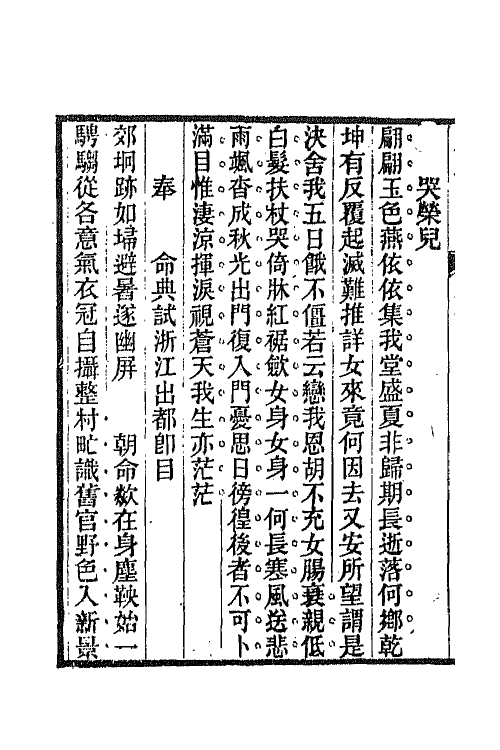 哭榮兒
翩翩玉色燕依依集我堂盛夏非歸期長逝落何鄉乾
坤有反覆起滅難推詳女來竟何因去又安所望謂是
決舍我五日餓不僵若云戀我恩胡不充女腸衰親低
白髮扶杖哭倚牀紅裾斂女身女身一何長寒風送悲
雨颯沓成秋光出門復入門憂思日徬徨後者不可卜
滿目惟淒涼揮淚視蒼天我生亦茫茫
奉　命典試浙江出都卽目
郊坰跡如埽避暑遂幽屏　朝命欻在身塵鞅始一
騁騶從各意氣衣冠自攝整村甿識舊官野色入新景